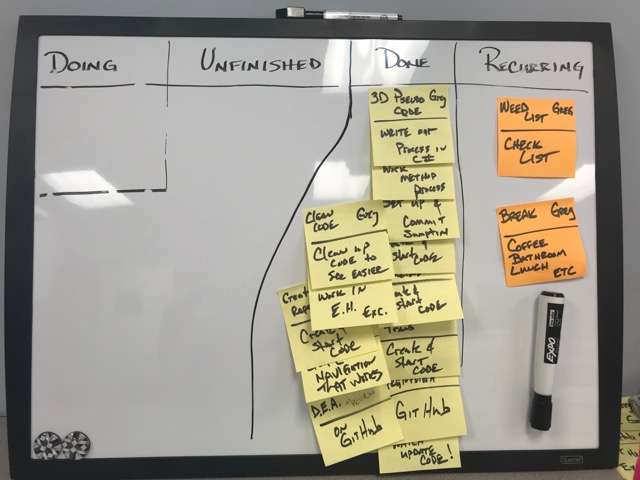 DOING
UNFINISHED
DONE
RECURRING
3D PSEUDO Greg
CODE
WRITE OUT
PROCESS IN
C#
WORK
METHOD
PROCESS
SET UP &
COMMIT
CLEAN Greg
CODE
CLEAN UP
CODE TO
SEE EASIER
START
CODE
WORK IN
E.H. EXC.
& START
CODE
CREATE &
START
CODE
START
CODE
NAVIGATION
THAT WORKS
D.E.A.
ON
GITHUB
GITHUB
UPDATE
CODE!
WEED GREG
LIST
CHECK
LIST
BREAK Greg
COFFEE
BATHROOM
LUNCH ETC
EXPO
Quartet